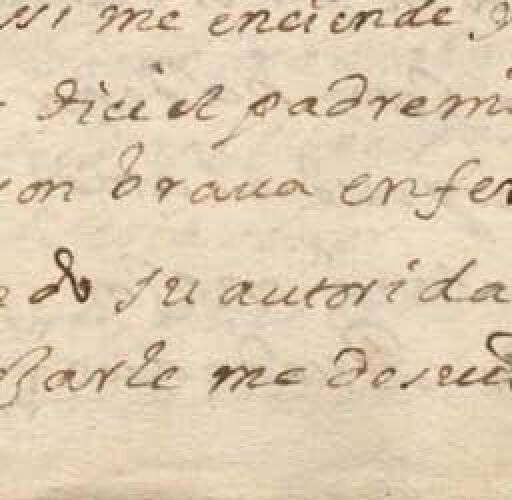 ssi me enciende
dici el padre mi
on braua enfer
do su autorida
zarle me descui